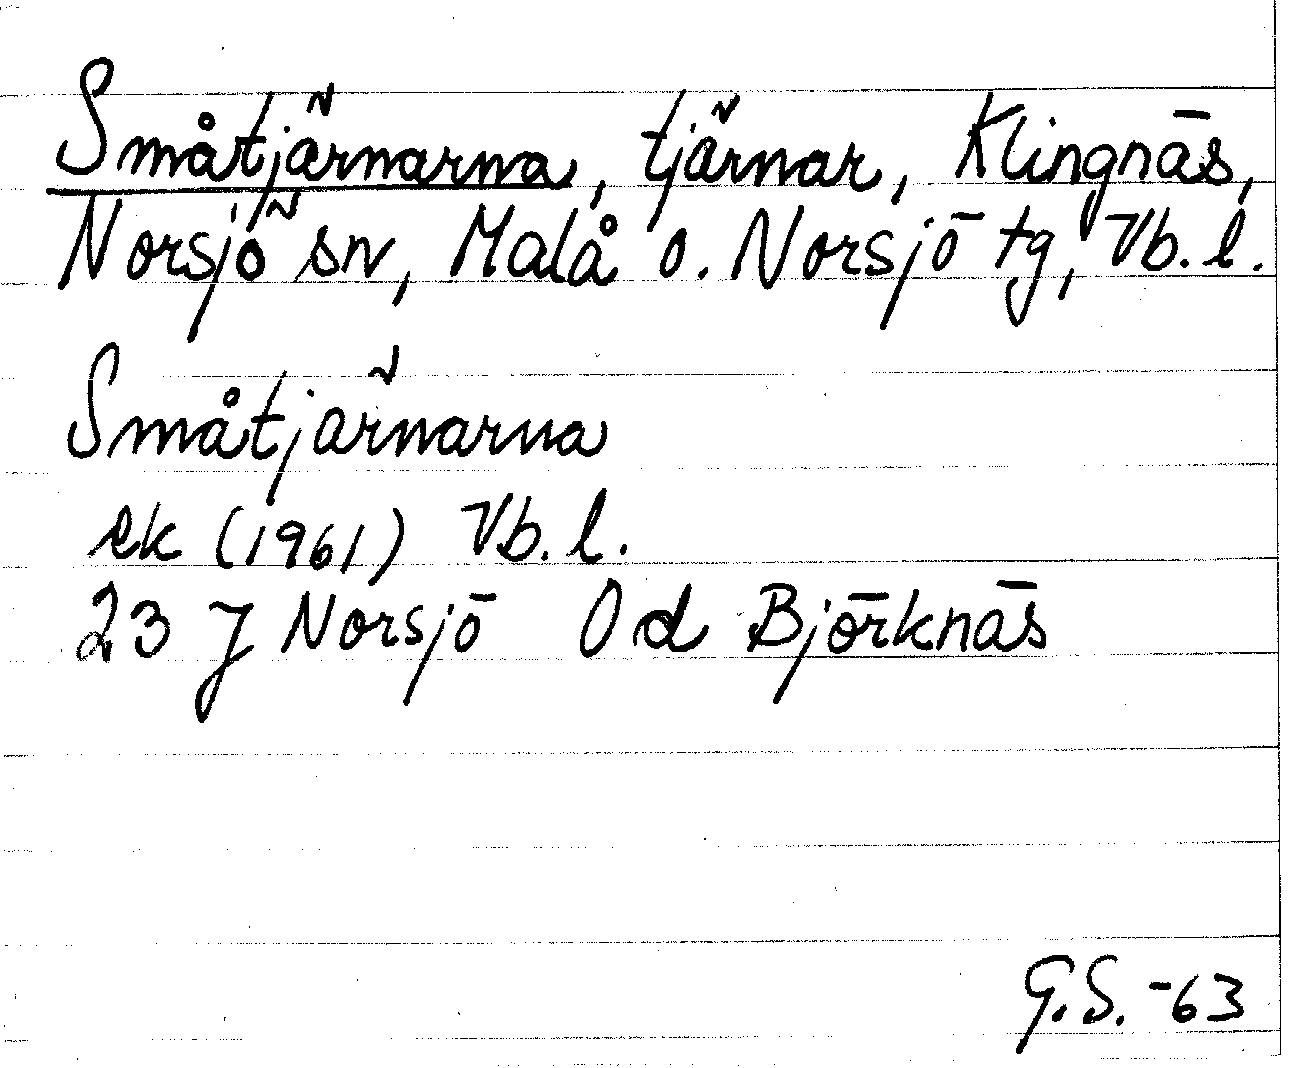 Småtjärnarna, tjärnar, Klingnäs,
Norsjö sn, Malå o. Norsjö tg, Vb. l.
Småtjärnarna
ek (1961) Vb. l.
23 J Norsjö 0 d Björknäs
G.S. -63